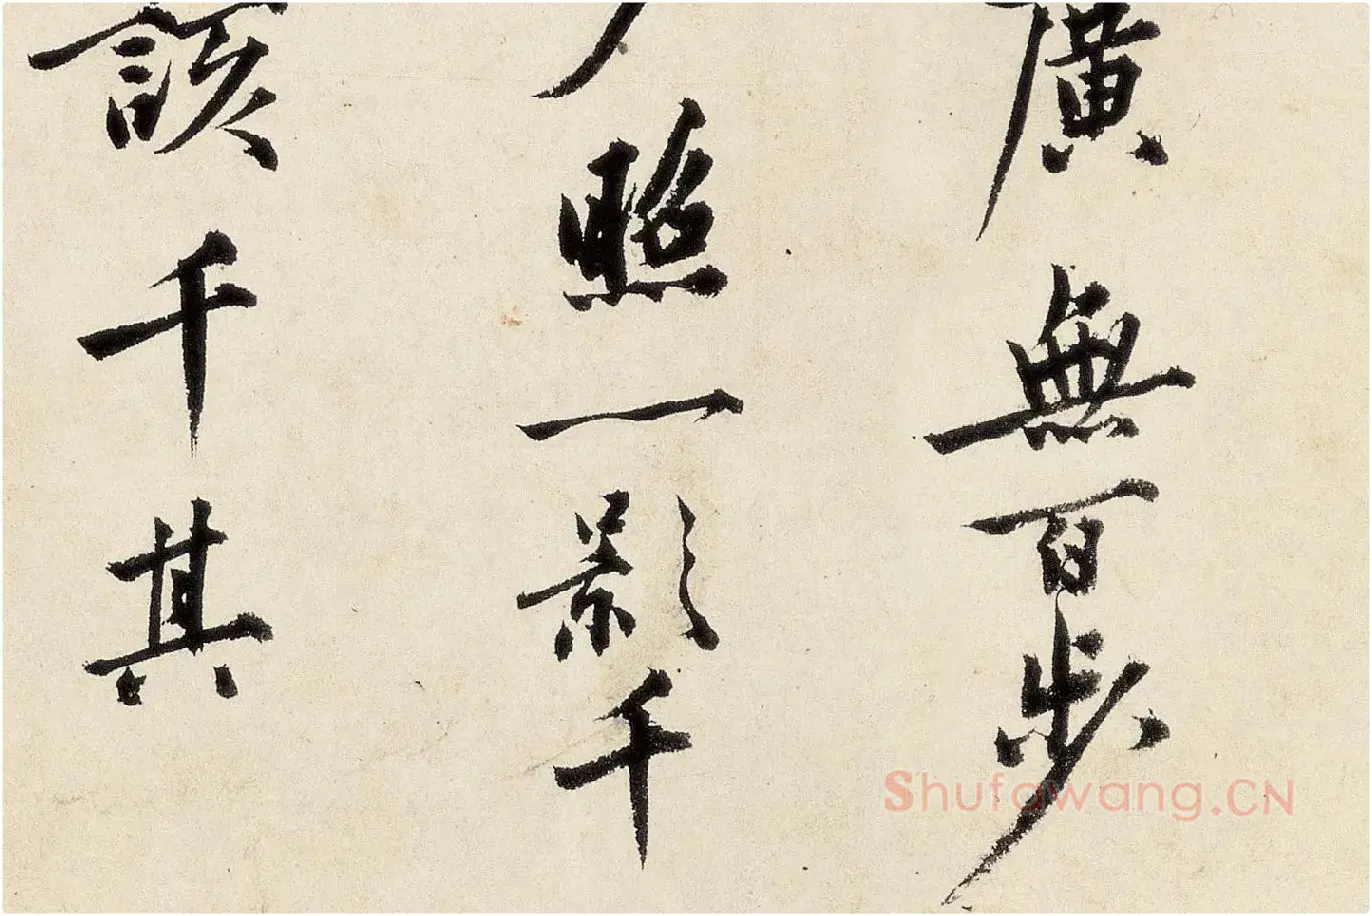 廣無百步
照一影千
該千其
Shufawang.CN